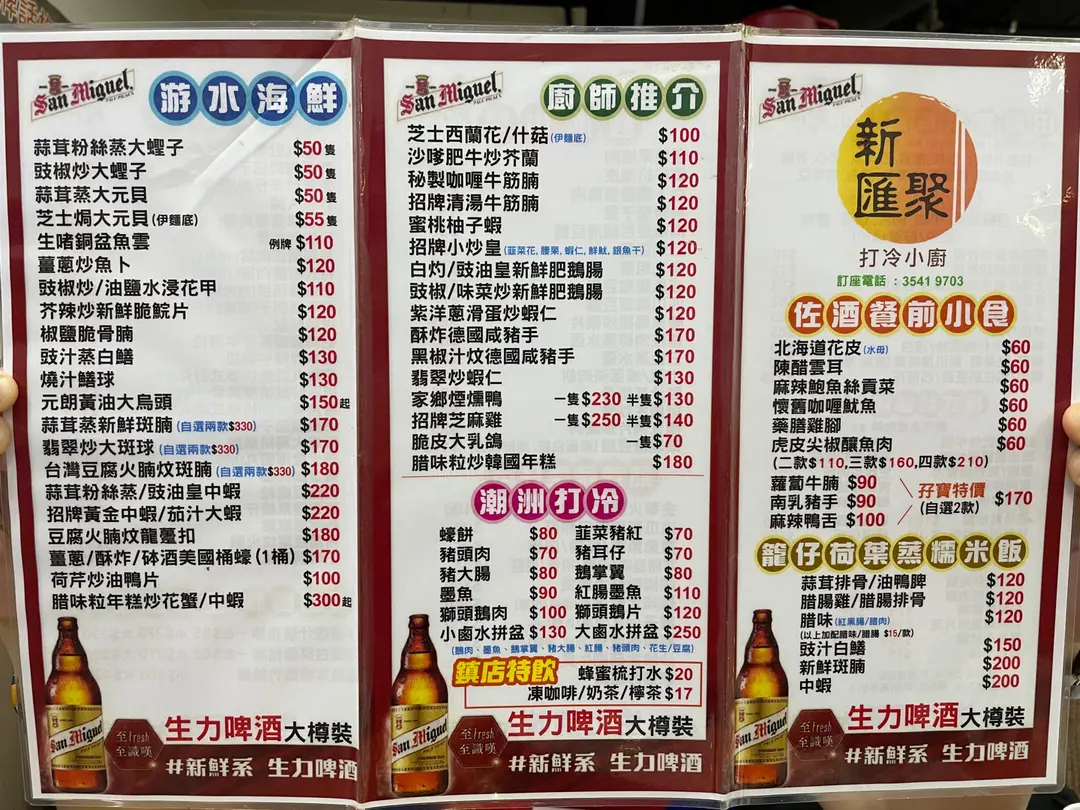 San Miguel
游水海鮮
蒜茸粉絲蒸大蟶子 $50隻
豉椒炒大蟶子 $50隻
蒜茸蒸大元貝 $50隻
芝士焗大元貝(伊麵底) $55隻
生啫銅盆魚雲 例牌 $110
薑蔥炒魚卜 $120
豉椒炒/油鹽水浸花甲 $110
芥辣炒新鮮脆鯇片 $120
椒鹽脆骨腩 $120
豉汁蒸白鱔 $130
燒汁鱔球 $130
元朗黃油大烏頭 $150起
蒜茸蒸新鮮斑腩(自選兩款$330) $170
翡翠炒大斑球(自選兩款$330) $170
台灣豆腐火腩炆斑腩(自選兩款$330) $180
蒜茸粉絲蒸/豉油皇中蝦 $220
招牌黃金中蝦/茄汁大蝦 $220
豆腐火腩炆龍躉扣 $180
薑蔥/酥炸/砵酒美國桶蠔(1桶) $170
荷芹炒油鴨片 $100
腊味粒年糕炒花蟹/中蝦 $300起
San Miguel
至fresh
至識嘆
生力啤酒大樽裝
#新鮮系 生力啤酒
San Miguel
廚師推介
芝士西蘭花/什菇(伊麵底) $100
沙嗲肥牛炒芥蘭 $110
秘製咖喱牛筋腩 $120
招牌清湯牛筋腩 $120
蜜桃柚子蝦 $120
招牌小炒皇(韮菜花, 腰果, 蝦仁, 鮮魷, 銀魚干) $120
白灼/豉油皇新鮮肥鵝腸 $120
豉椒/味菜炒新鮮肥鵝腸 $120
紫洋蔥滑蛋炒蝦仁 $120
酥炸德國咸豬手 $170
黑椒汁炆德國咸豬手 $170
翡翠炒蝦仁 $130
家鄉煙燻鴨 一隻$230 半隻$130
招牌芝麻雞 一隻$250 半隻$140
脆皮大乳鴿 一隻$70
腊味粒炒韓國年糕 $180
潮洲打冷
蠔餅 $80 韮菜豬紅 $70
豬頭肉 $70 豬耳仔 $70
豬大腸 $80 鵝掌翼 $80
墨魚 $90 紅腸墨魚 $110
獅頭鵝肉 $100 獅頭鵝片 $120
小鹵水拼盆 $130 大鹵水拼盆 $250
(鵝肉、墨魚、鵝掌翼、豬大腸、紅腸、豬頭肉、花生/豆腐)
鎮店特飲 蜂蜜梳打水 $20
凍咖啡/奶茶/檸茶 $17
San Miguel
至fresh
至識嘆
生力啤酒大樽裝
#新鮮系 生力啤酒
San Miguel
新匯聚
打冷小廚
訂座電話 : 3541 9703
佐酒餐前小食
北海道花皮(水母) $60
陳醋雲耳 $60
麻辣鮑魚絲貢菜 $60
懷舊咖喱魷魚 $60
藥膳雞腳 $60
虎皮尖椒釀魚肉 $60
(二款$110,三款$160,四款$210)
蘿蔔牛腩 $90
南乳豬手 $90
麻辣鴨舌 $100
孖寶特價
(自選2款) $170
龍仔荷葉蒸糯米飯
蒜茸排骨/油鴨脾 $120
腊腸雞/腊腸排骨 $120
腊味(紅黑腸/腊肉) $120
(以上加配腊味/腊腸 $15/款)
豉汁白鱔 $150
新鮮斑腩 $200
中蝦 $200
San Miguel
至fresh
至識嘆
生力啤酒大樽裝
#新鮮系 生力啤酒